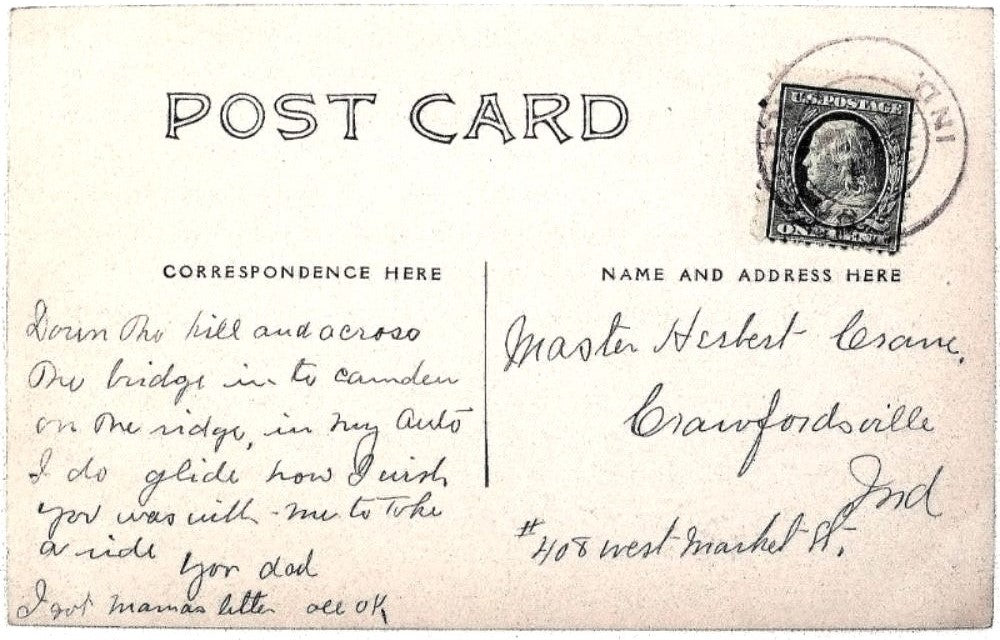 POST CARD
U.S. POSTAGE
ONE CENT
IND.
CORRESPONDENCE HERE
Down the hill and across
the bridge in to camden
on the ridge, in my Auto
I do glide how I wish
you was with me to Take
a ride
your dad
I got mamas letter all OK
NAME AND ADDRESS HERE
Master Herbert Crane,
Crawfordsville
Ind
#408 west market St.